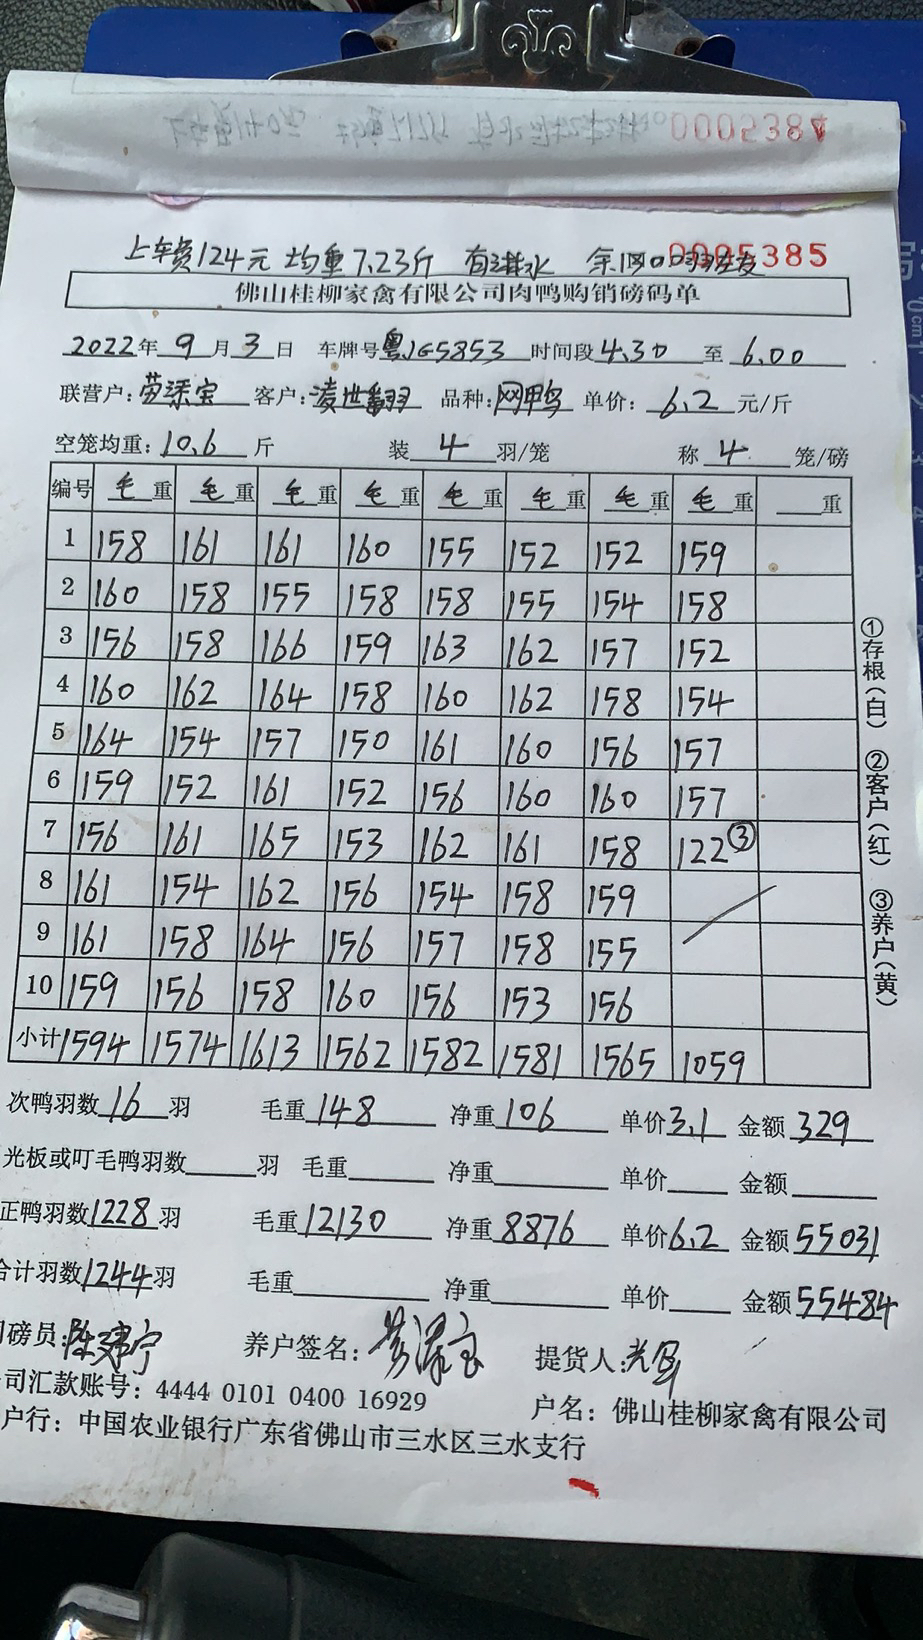 0005384
上车费124元 均重7.23斤 有淋水 0005385
佛山桂柳家禽有限公司肉鸭购销磅码单
2022年 9 月 3 日 车牌号粤JG5853 时间段4.30 至 6.00
联营户：劳添宝 客户：凌世翻羽 品种：网甲鸟 单价：6.2 元/斤
空笼均重：10.6 斤 装 4 羽/笼 称 4 笼/磅
编号 毛重 毛重 毛重 毛重 毛重 毛重 毛重 毛重 重
1 158 161 161 160 155 152 152 159
2 160 158 155 158 158 155 154 158
3 156 158 166 159 163 162 157 152
4 160 162 164 158 160 162 158 154
5 164 154 157 150 161 160 156 157
6 159 152 161 152 156 160 160 157
7 156 161 165 153 162 161 158 122③
8 161 154 162 156 154 158 159
9 161 158 164 156 157 158 155
10 159 156 158 160 156 153 156
小计 1594 1574 1613 1562 1582 1581 1565 1059
①存根(白) ②客户(红) ③养户(黄)
次鸭羽数 16 羽 毛重 148 净重 106 单价 3.1 金额 329
光板或叮毛鸭羽数 羽 毛重 净重 单价 金额
正鸭羽数 1228 羽 毛重 12130 净重 8876 单价 6.2 金额 55031
合计羽数 1244 羽 毛重 净重 单价 金额 55484
司磅员：陈建宁 养户签名：劳添宝 提货人：
司汇款账号：4444 0101 0400 16929 户名：佛山桂柳家禽有限公司
户行：中国农业银行广东省佛山市三水区三水支行